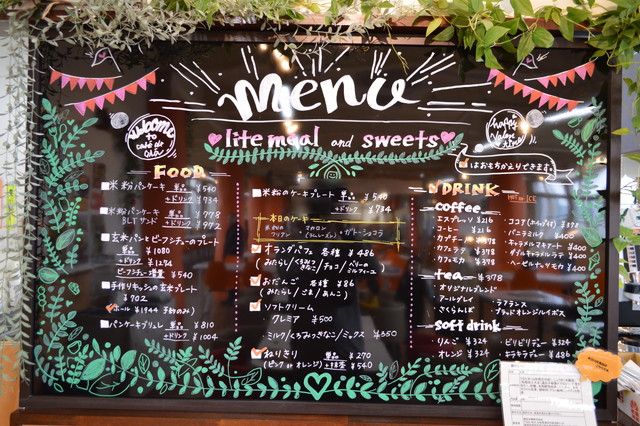 menu
lite meal and sweets
Welcome
to
café de
happy
Valen
tine
はおもちかえりできます。
FOOD
米粉パンケーキ 単品 ¥540
+ドリンク ¥734
米粉パンケーキ ¥778
BLTサンド +ドリンク ¥972
玄米パンとビーフシチューのプレート
単品 ¥1080
+ドリンク ¥1274
ビーフシチュー増量 ¥540
手作りキッシュの玄米プレート
¥702
ホール ¥1944 予約のみ
パンケーキブリュレ 単品 ¥810
+ドリンク ¥1004
米粉のケーキプレート 単品 ¥540
+ドリンク ¥734
本日のケーキ
ガトーショコラ
オランダパフェ 各種 ¥486
おだんご 各種 ¥86
(みたらし/ごま/あんこ)
ソフトクリーム
クレミア ¥500
ミルク/くろみつきなこ/ミックス ¥350
ねりきり 単品 ¥270
(ピンク or オレンジ) +抹茶 ¥540
DRINK
HOT or ICE
coffee
エスプレッソ ¥216
コーヒー ¥216
カプチーノ ¥378
カフェラテ ¥378
カフェモカ ¥378
ココア ¥378
バニラミルク ¥400
キャラメルマキアート ¥400
ダブルキャラメルラテ ¥400
ヘーゼルナッツモカ ¥400
tea ¥378
オリジナルブレンド
アールグレイ
さくらんぼ
ラフランス
ブラッドオレンジルイボス
soft drink
りんご ¥324
オレンジ ¥324
ビリビリデュー ¥324
キラキラデュー ¥486